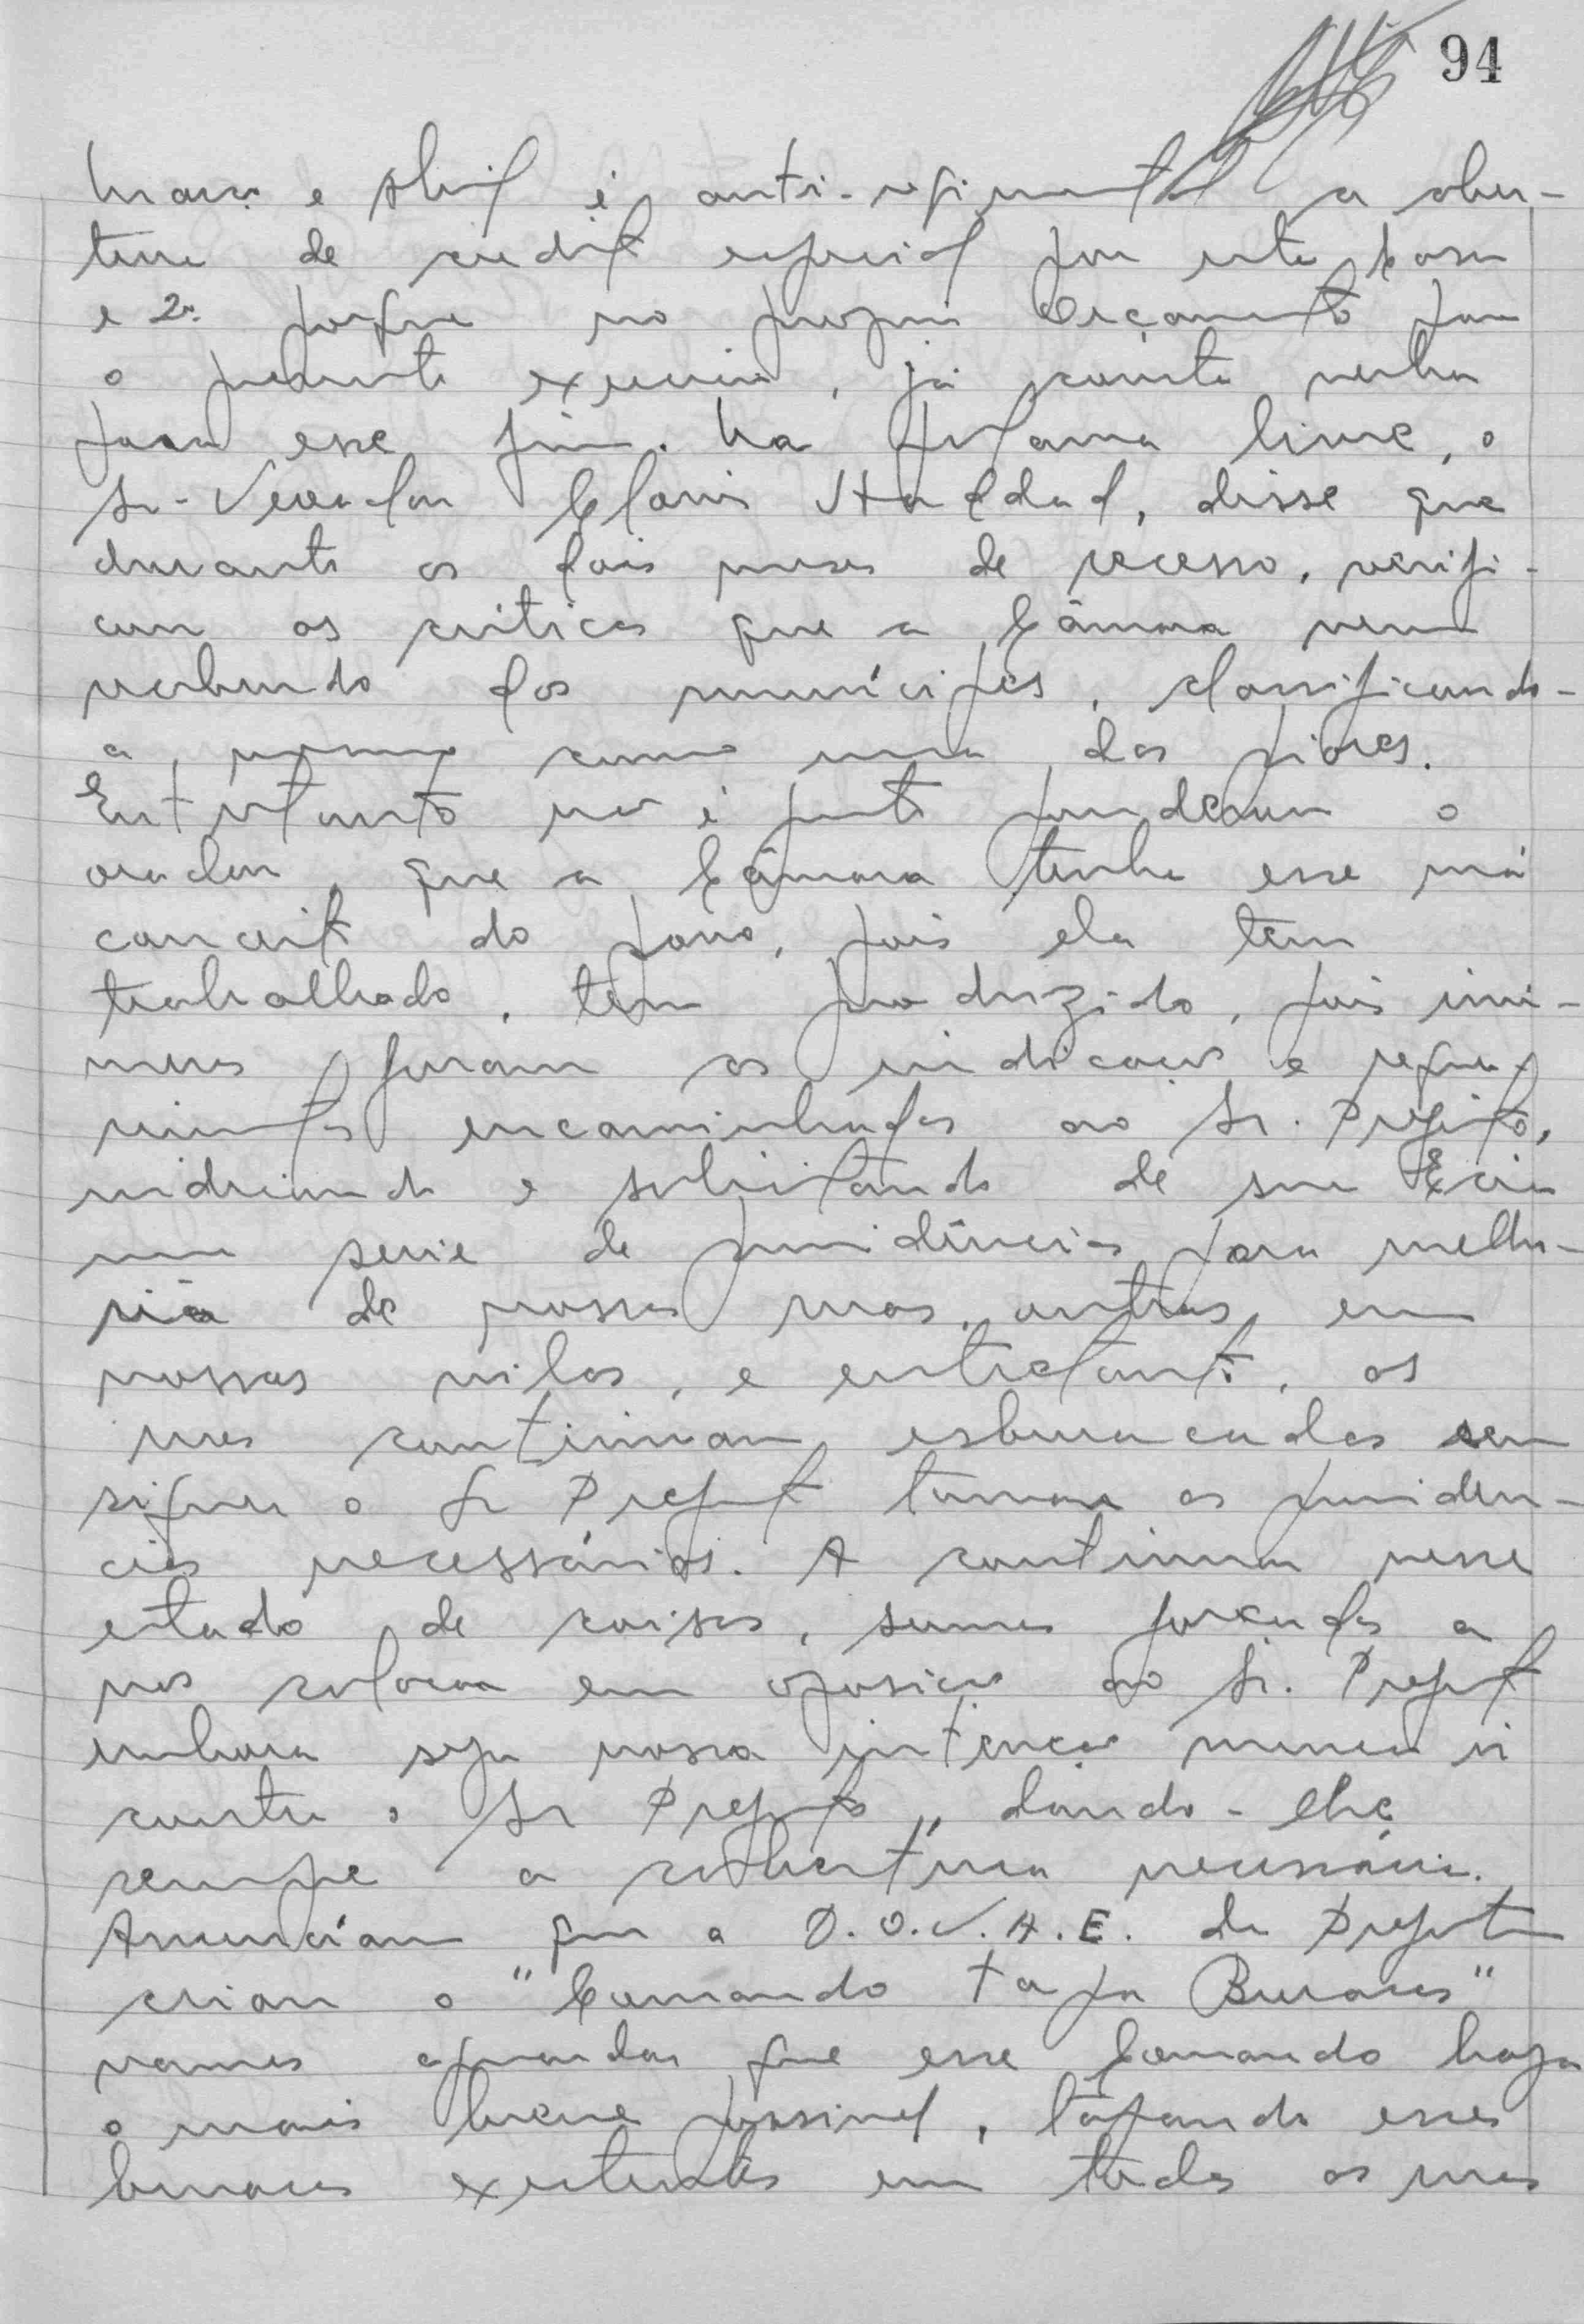 94
março e abril é anti-regimental a aber-
tura de credito especial para esta Casa
e 2º porque no proprio Orçamento para
o presente exercicio, já consta verba
para esse fim. Na palavra livre, o
Sr. Vereador Clovis Haddad, disse que
durante os dois meses de recesso, verifi-
cou as críticas que a Câmara vem
recebendo dos munícipes, classificando-
a mesmo como uma das piores.
Entretanto não é justo ponderou o
orador, que a Câmara tenha esse má
conceito do povo, pois ela tem
trabalhado, tem produzido, pois inú-
meras foram as indicações e reque-
rimentos encaminhados ao Sr. Prefeito,
indicando e solicitando de sua Excia
uma serie de providências para melho-
ria de nossas ruas, outras em
nossas vilas, e entretanto, as
ruas continuam esburacadas sem
siquer o Sr Prefeito tomar as providen-
cias necessárias. A continuar nesse
estado de coisas, seremos forçados a
nos colocar em oposição ao Sr. Prefeito
embora seja nossa intenção nunca ir
contra o Sr Prefeito, dando-lhe
sempre a cobertura necessária.
Anunciam que a D.O.V.A.E. da Prefeitura
criou o "Comando Tapa Buracos"
vamos aguardar que esse Comando haja
o mais breve possivel, tapando esses
buracos existentes em todas as ruas